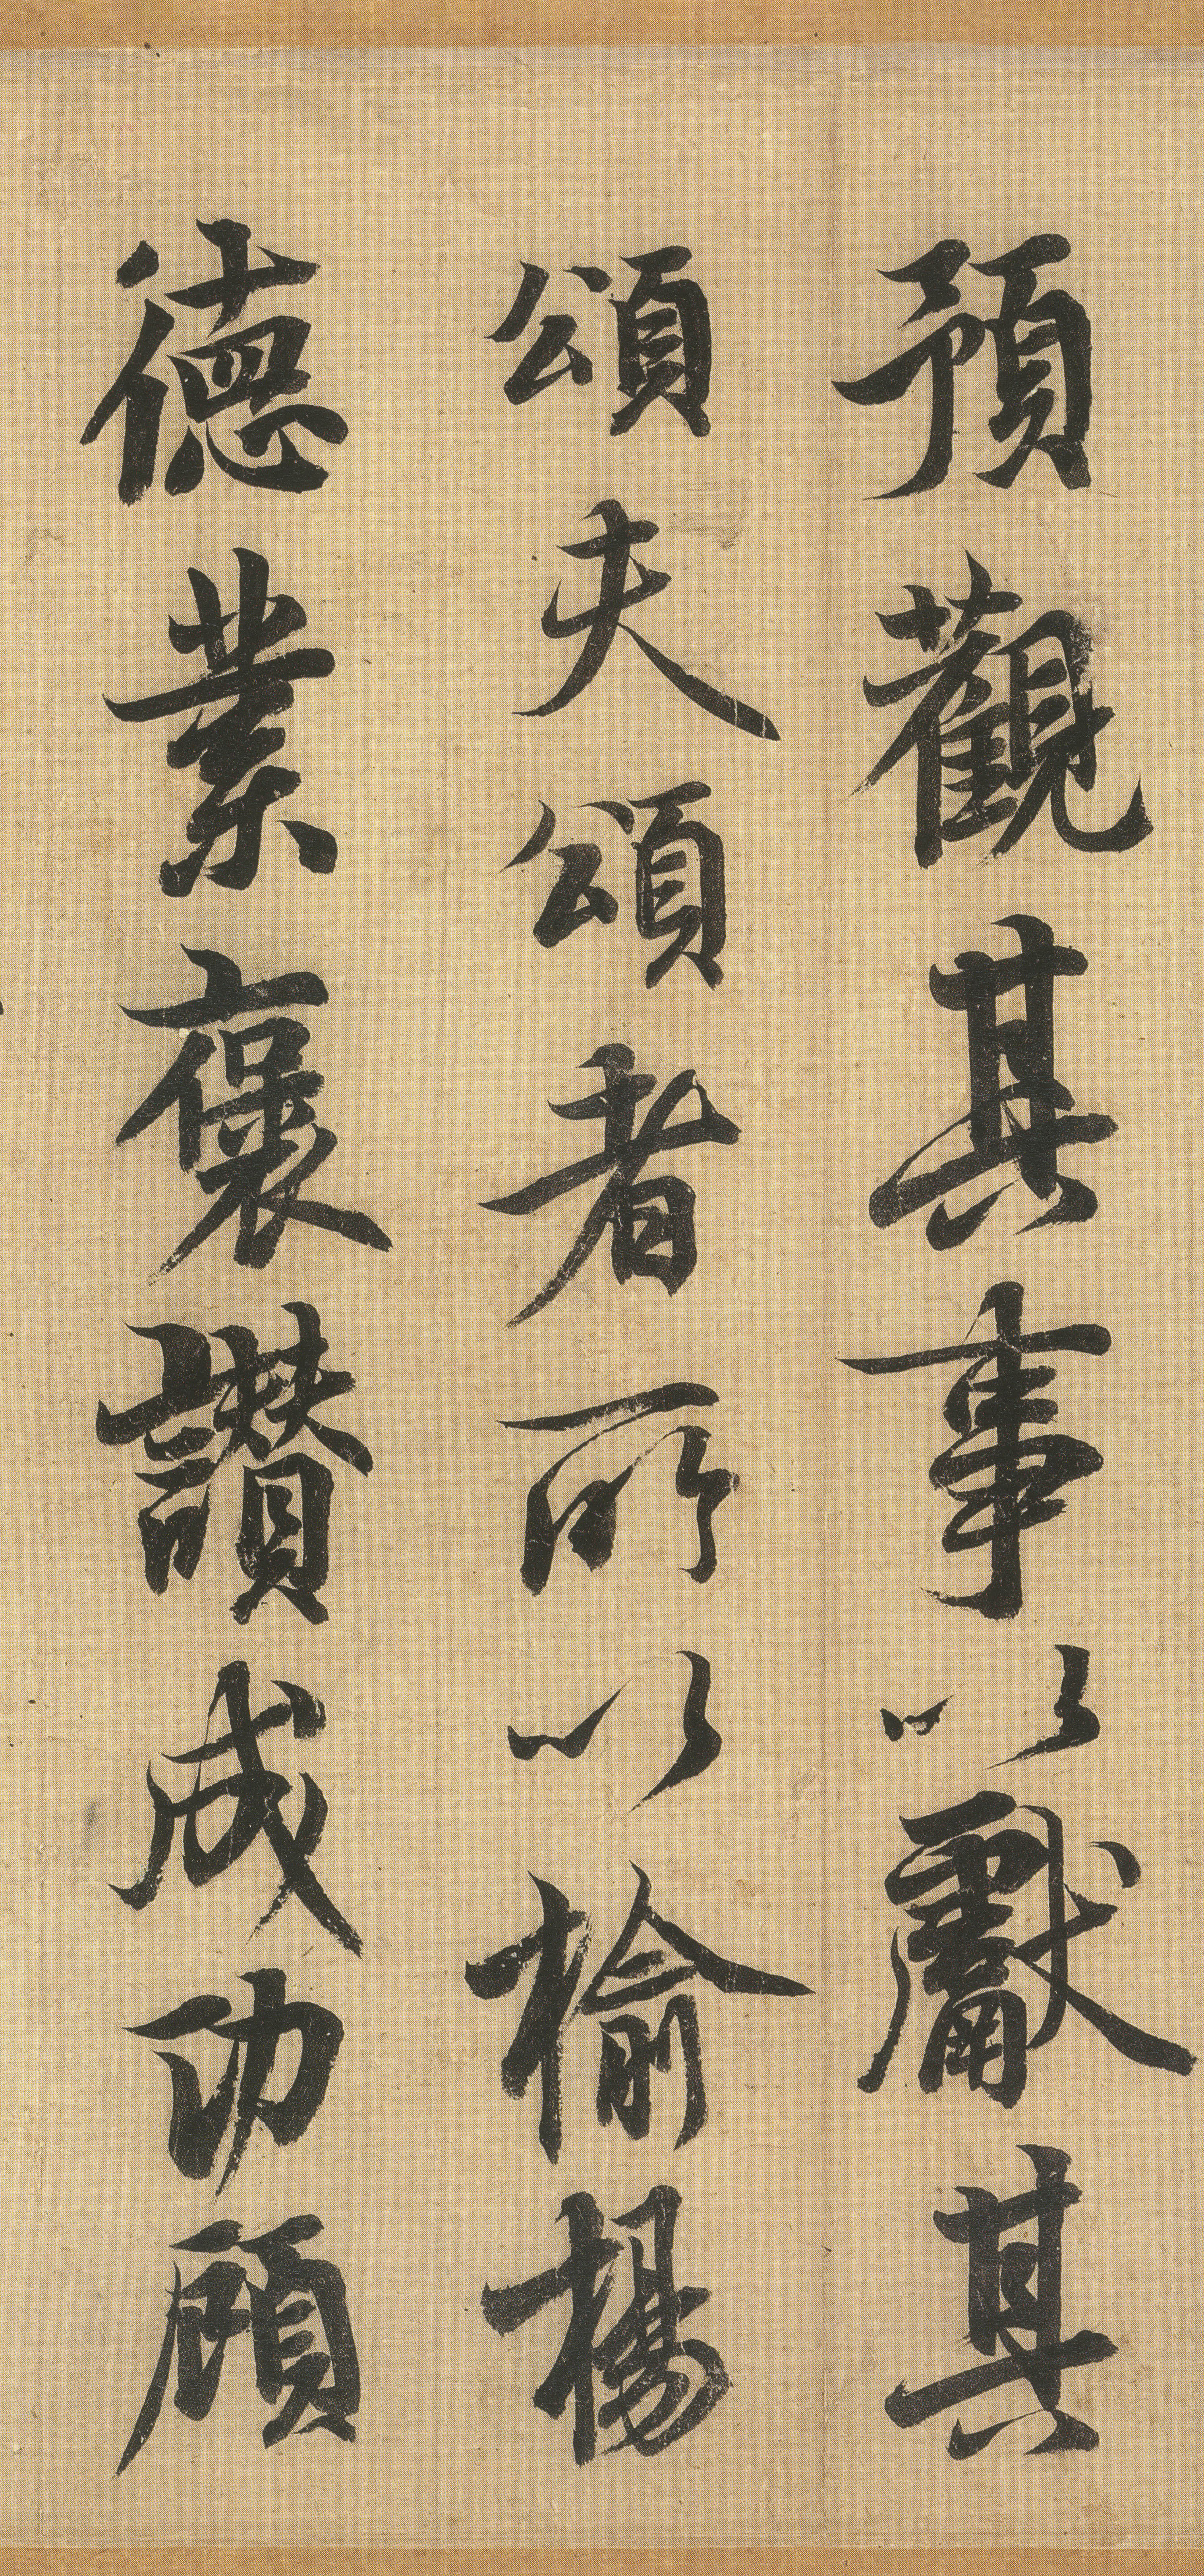 預觀其事以獻其
頌夫頌者所以榆楊
德業褒讚成功顧